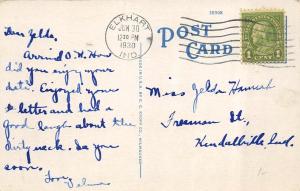 Dear Zelda.
Arrived O.K. How
did you enjoy your
date. Enjoyed your
letter and had a
Good laugh about the
dirty neck. So you
soon.
Love
ELKHART
JUN 30
12 30 PM
1930
IND.
POST
CARD
1 CENT 1
Miss Zelda
Freeman St,
Kendallville Ind.